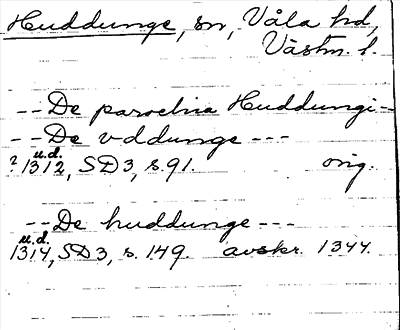 Huddunge, sn, Våla hd,
Västm. l.
-- De parochia Huddungi--
-- De vddunge ---
u.d.
? 1312, SD3, s. 91. orig.
-- De huddunge ---
u.d.
1314, SD3, s. 149. avskr. 1344.